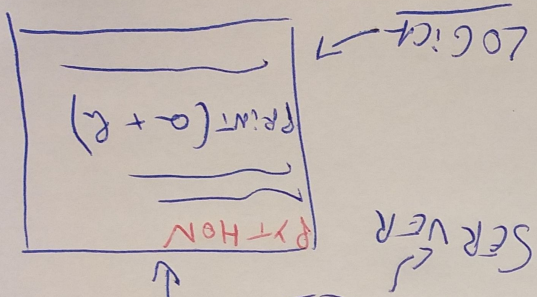 SERVER
PYTHON
PRINT (a + b)
LOGiCA